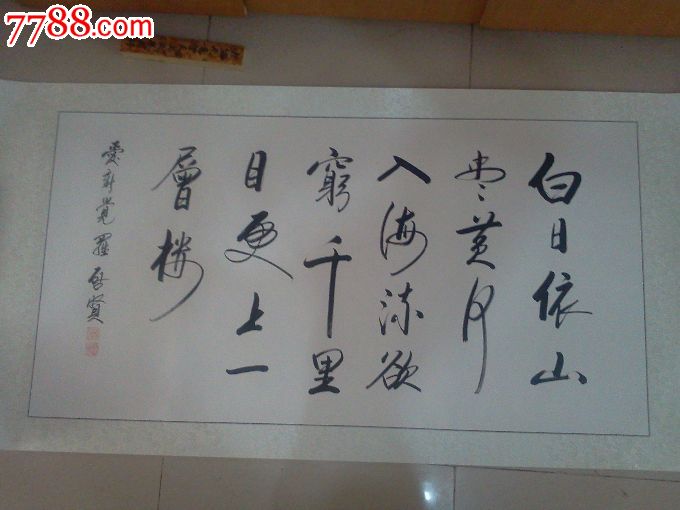 7788.com
白日依山
尽黄河
入海流欲
窮千里
目更上一
層楼
愛新覺羅启賢